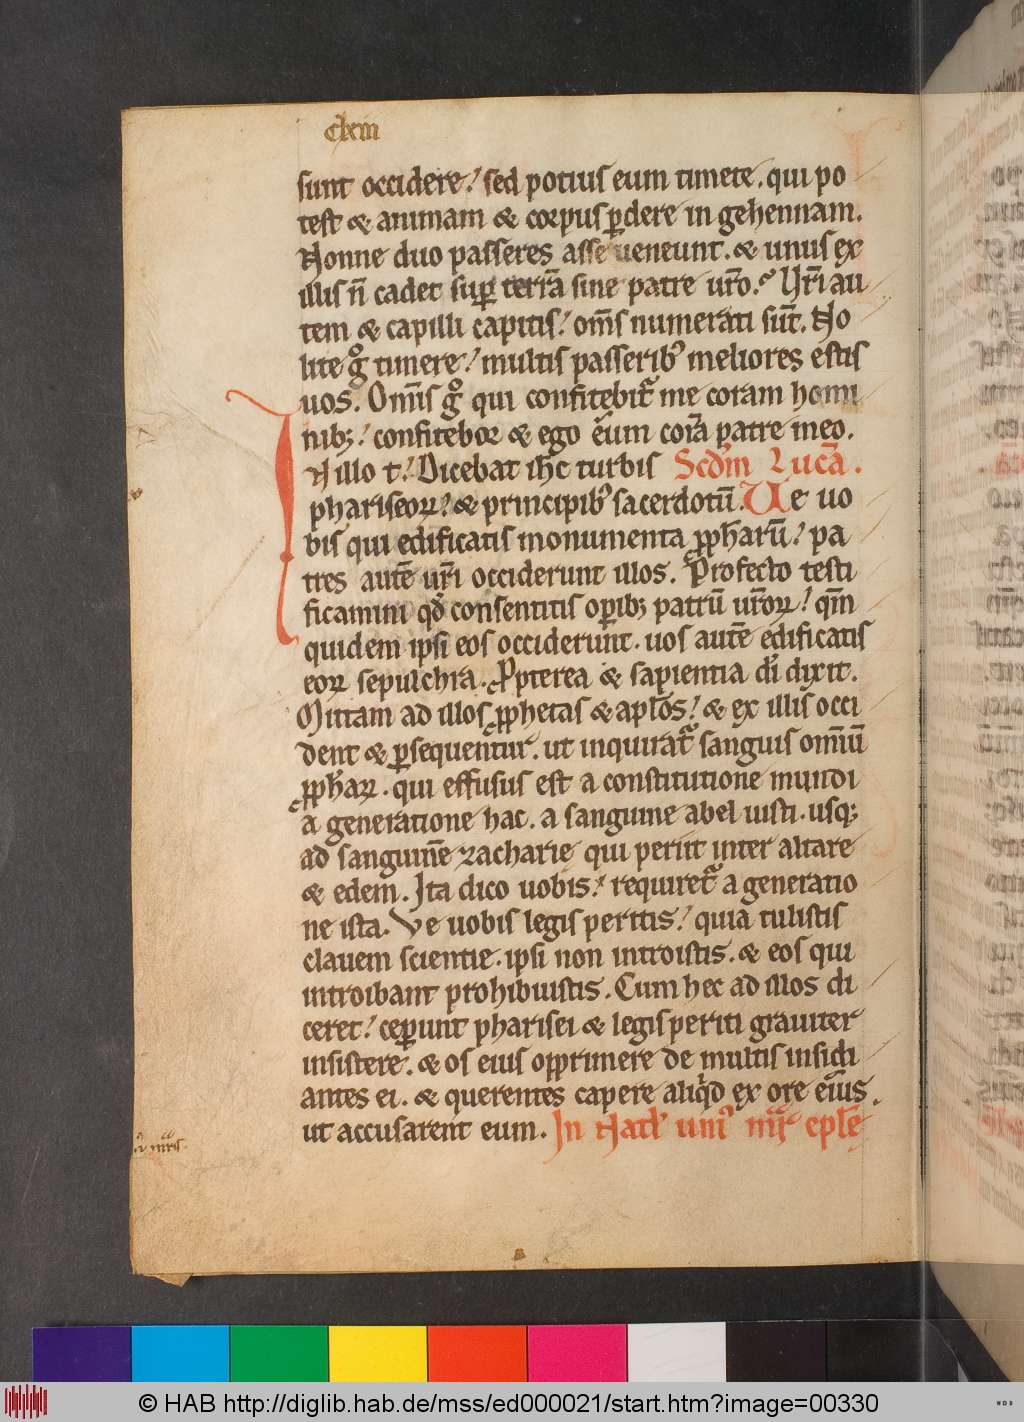 clxiii
sunt occidere. sed potius eum timete. qui po
test & animam & corpus ꝑdere in gehennam.
Nonne duo passeres asse ueneunt. & unus ex
illis ñ cadet suꝑ terrā sine patre ur̄o. Ur̄i au
tem & capilli capitis. om̄s numerati sūt. No
lite gͦ timere. multis passeribꝰ meliores estis
uos. Om̄is gͦ qui confitebit᷑ me coram homi
nibꝫ. confitebor & ego eum corā patre meo.
In illo t̄. Dicebat ih̄c turbis Scdm̄ Lucā.
phariseoꝝ. & principibꝰ sacerdotū. Ve uo
bis qui edificatis monumenta ꝓphꝫarū. pa
tres autē ur̄i occiderunt illos. Profecto testi
ficamini qđ consentitis oꝑibꝫ patrū ur̄oꝝ. qm̄
quidem ipsi eos occiderunt. uos autē edificatis
eoꝝ sepulchra. Ꝓpterea & sapientia dī dixit.
Mittam ad illos ꝓphetas & apl̄os. & ex illis occi
dent & ꝑsequentur. ut inquirat᷑ sanguis omiū
ꝓpharꝝ. qui effusus est a constitutione mundi
a generatione hac. a sanguine abel iusti. usqꝫ
ad sanguinē zacharie qui periit inter altare
& edem. Ita dico uobis. requiret᷑ a generatio
ne ista. Ve uobis legis peritis. quia tulistis
clauem scientie. ipsi non introistis. & eos qui
introibant prohibuistis. Cum hec ad illos di
ceret. ceꝑunt pharisei & legis periti grauiter
insistere. & os eius opprimere de multis insidi
antes ei. & querentes capere aliqͥd ex ore eius.
ut accusarent eum. In Natl̓ uniꝰ mr̄ epl̄e
© HAB http://diglib.hab.de/mss/ed000021/start.htm?image=00330